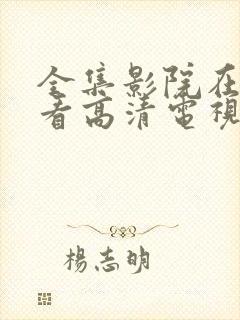 全集影院在
看高清電視
楊志明